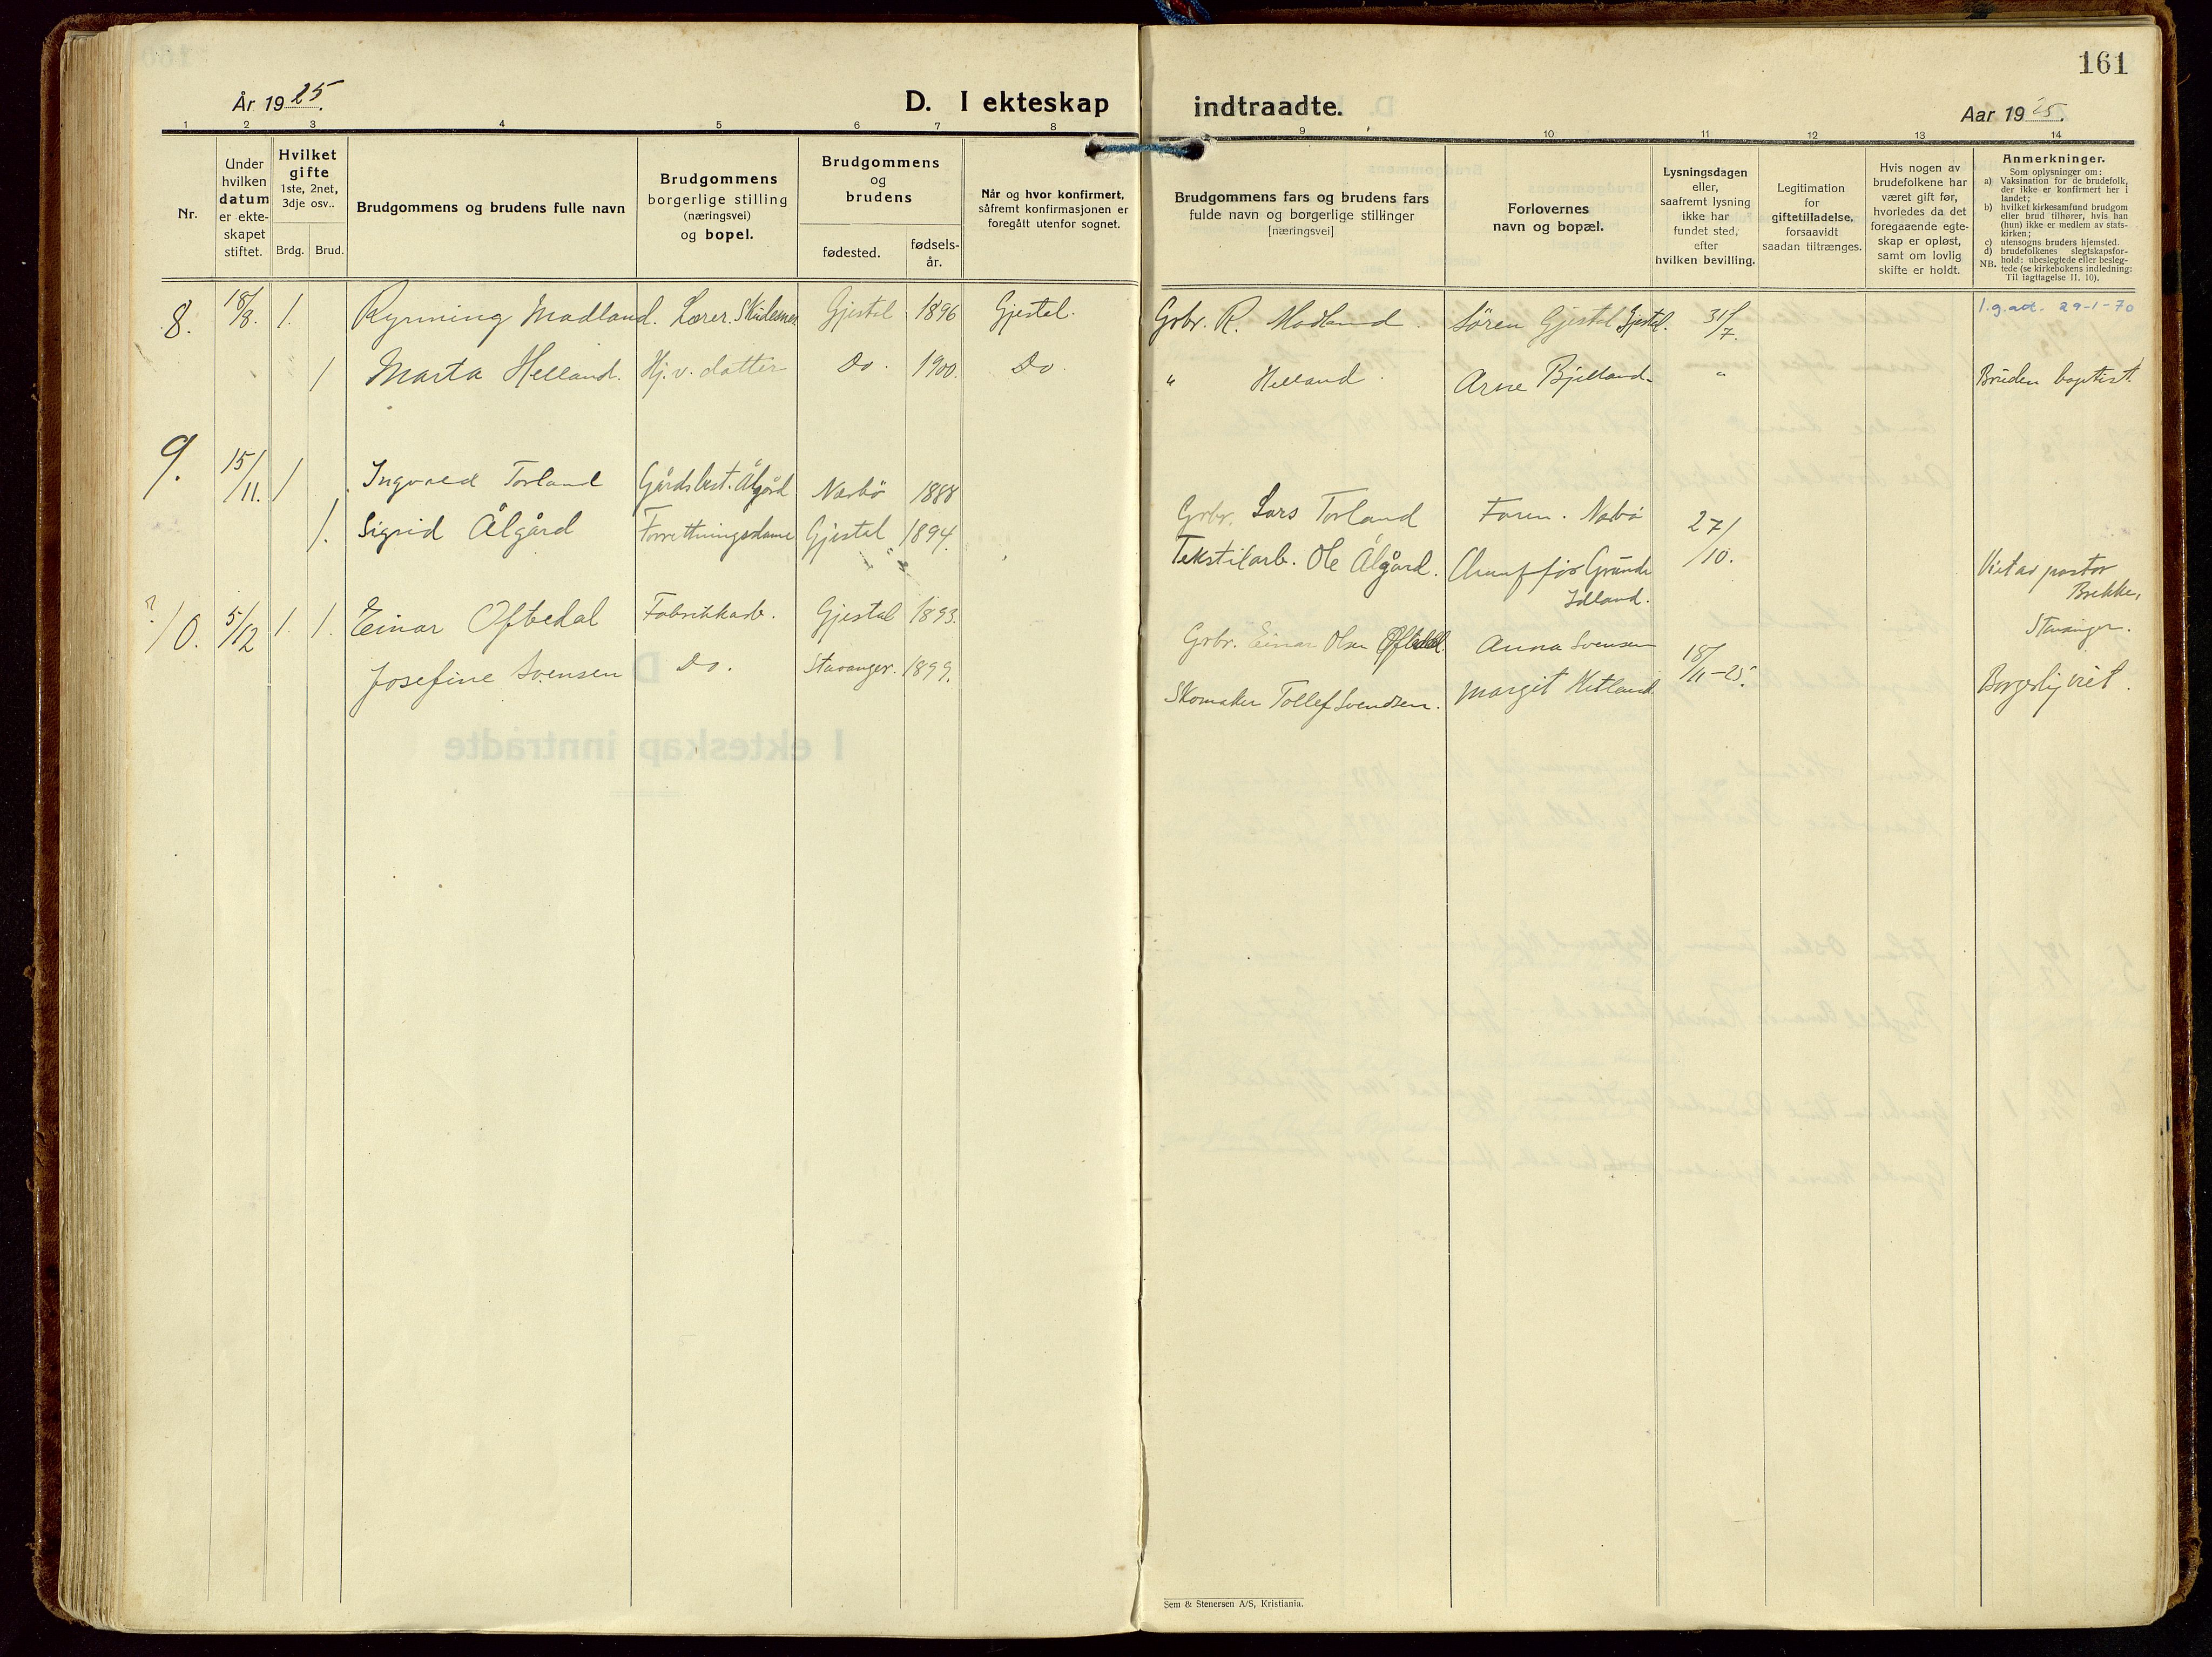 161
År 1925.
D. I ekteskap indtraadte.
Aar 1925.
1 2 3 4 5 6 7 8 9 10 11 12 13 14
Nr.
Under
hvilken
datum
er ekte-
skapet
stiftet.
Hvilket
gifte
1ste, 2net,
3dje osv..
Brdg. Brud.
Brudgommens og brudens fulle navn
Brudgommens
borgerlige stilling
(næringsvei)
og bopel.
Brudgommens
og
brudens
fødested.
fødsels-
år.
Når og hvor konfirmert,
såfremt konfirmasjonen er
foregått utenfor sognet.
Brudgommens fars og brudens fars
fulde navn og borgerlige stillinger
[næringsvei]
Forlovernes
navn og bopæl.
Lysningsdagen
eller,
saafremt lysning
ikke har
fundet sted,
efter
hvilken bevilling.
Legitimation
for
giftetilladelse,
forsaavidt
saadan tiltrænges.
Hvis nogen av
brudefolkene har
været gift før,
hvorledes da det
foregaaende egte-
skap er opløst,
samt om lovlig
skifte er holdt.
Anmerkninger.
Som oplysninger om:
a) Vaksination for de brudefolk,
der ikke er konfirmert her i
landet;
b) hvilket kirkesamfund brudgom
eller brud tilhører, hvis han
(hun) ikke er medlem av stats-
kirken;
c) utensogns bruders hjemsted.
d) brudefolkenes slegtskapsfor-
hold: ubeslegtede eller besleg-
NB. tede (se kirkebokens indledning:
Til iagttagelse II. 10).
8. 18/8. 1. Rynning Madland. Lærer. Skudesnes Gjestal 1896 Gjestal. Grbr. R. Madland. Sören Gjestal Gjestal. 31/7. l.g.at. 29-1-70
1 Marta Helland. Hj.v. datter Do. 1900. Do. " Helland. Arne Bjelland. " Bruden baptist.
9. 15/11. 1 Ingvald Torland Gårdsbest. Ålgård Nærbö 1888 Grbr. Lars Torland Faren. Nærbö 27/10.
1. Sigrid Ålgård Forrettningsdame Gjestal 1894. Tekstilarb. Ole Ålgård. Chaufför Grunde
Idland.
Viet av pastor
Brekke,
Stavanger.
? 10. 5/12 1. 1. Einar Oftedal Fabrikkarb. Gjestal 1893. Grbr. Einar Olsen Oftedal. Anna Svensen 18/11-25.
Josefine Svensen Do. Stavanger. 1899. Skomaker Tollef Svendsen. Margit Hetland. Borgerlig viet.
I ekteskap inntrådte
Sem & Stenersen A/S, Kristiania.